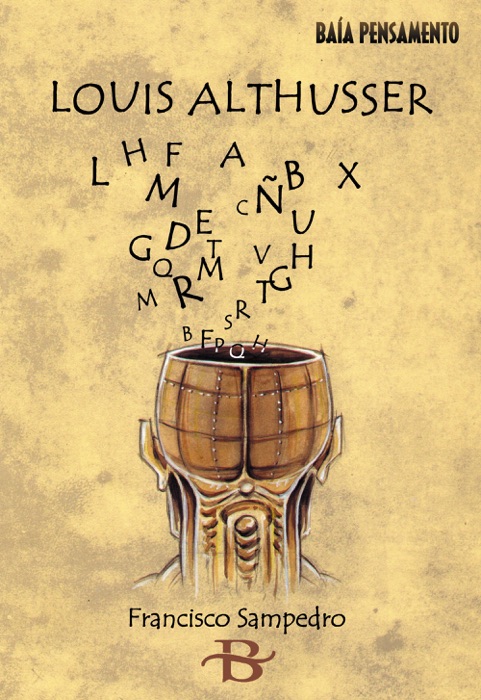 BAÍA PENSAMENTO
LOUIS ALTHUSSER
L H F A
M C Ñ B X
G D E U
Q T M V H
M R T G
S R
B F P Q H
Francisco Sampedro
B